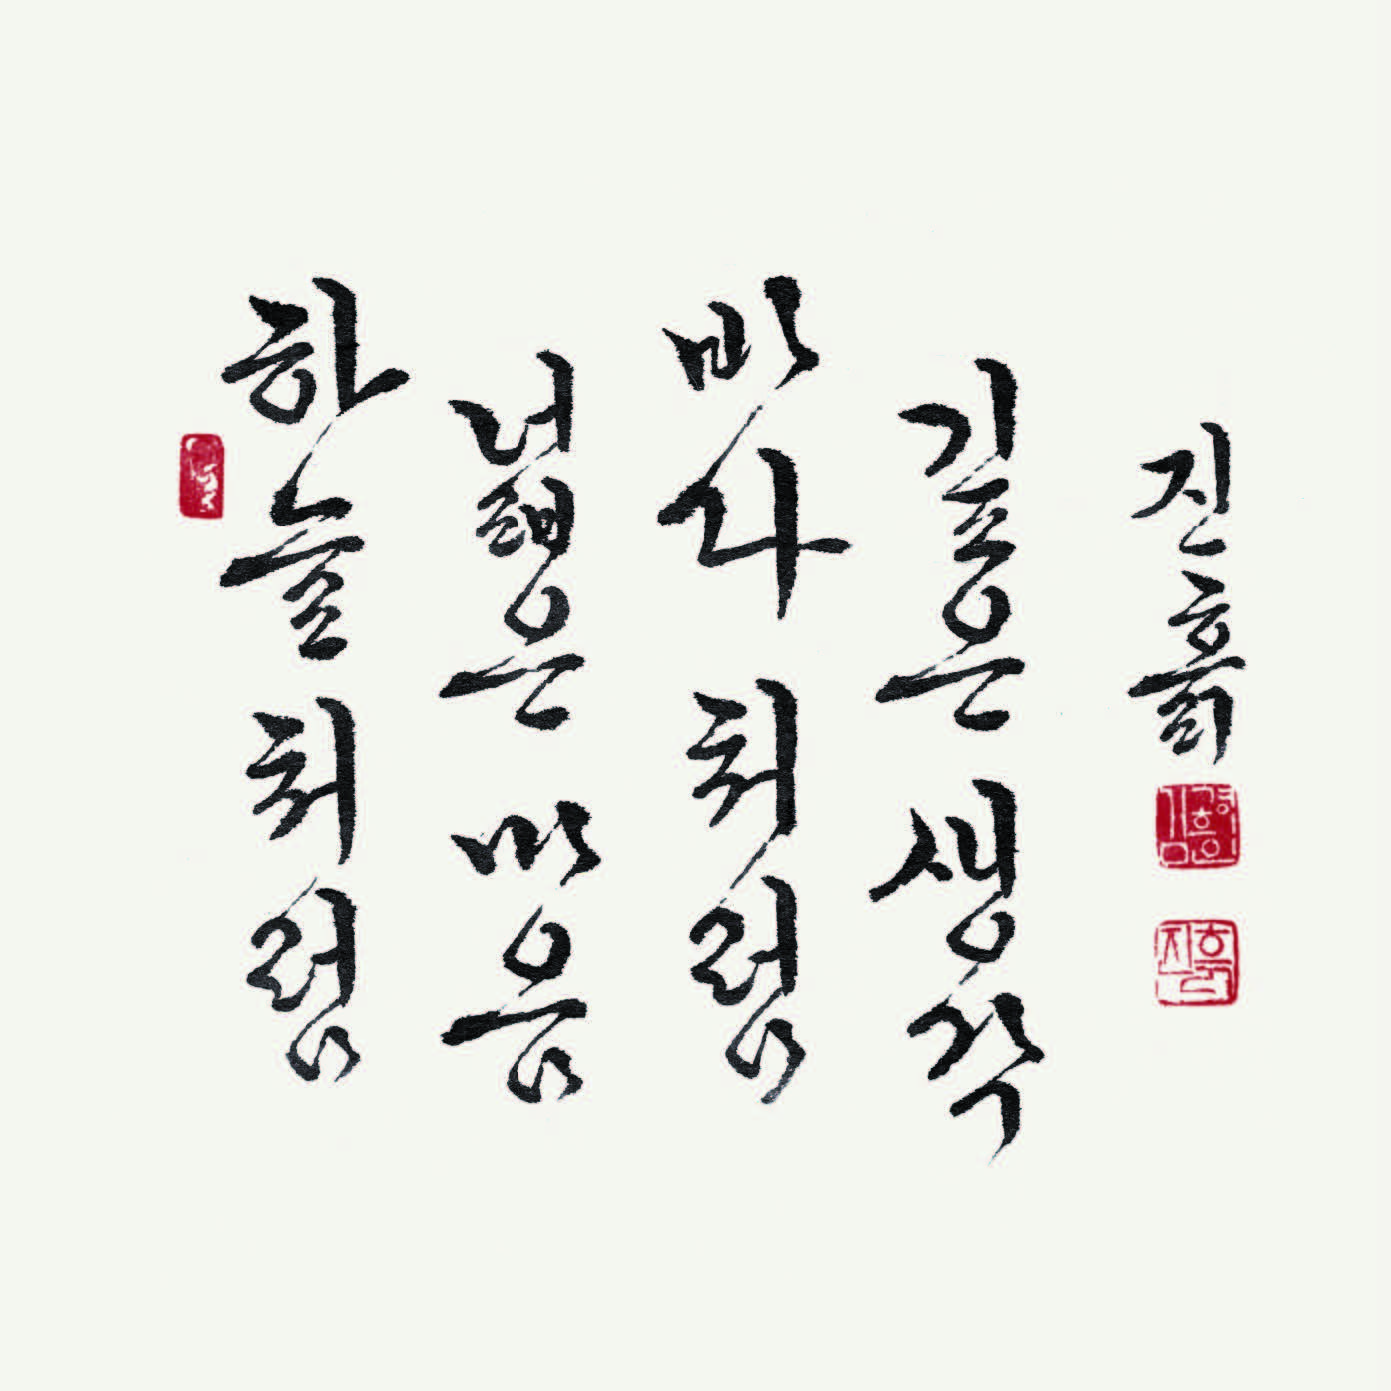 하늘처럼
넓은 마음
바다처럼
깊은 생각
진흙
진흙